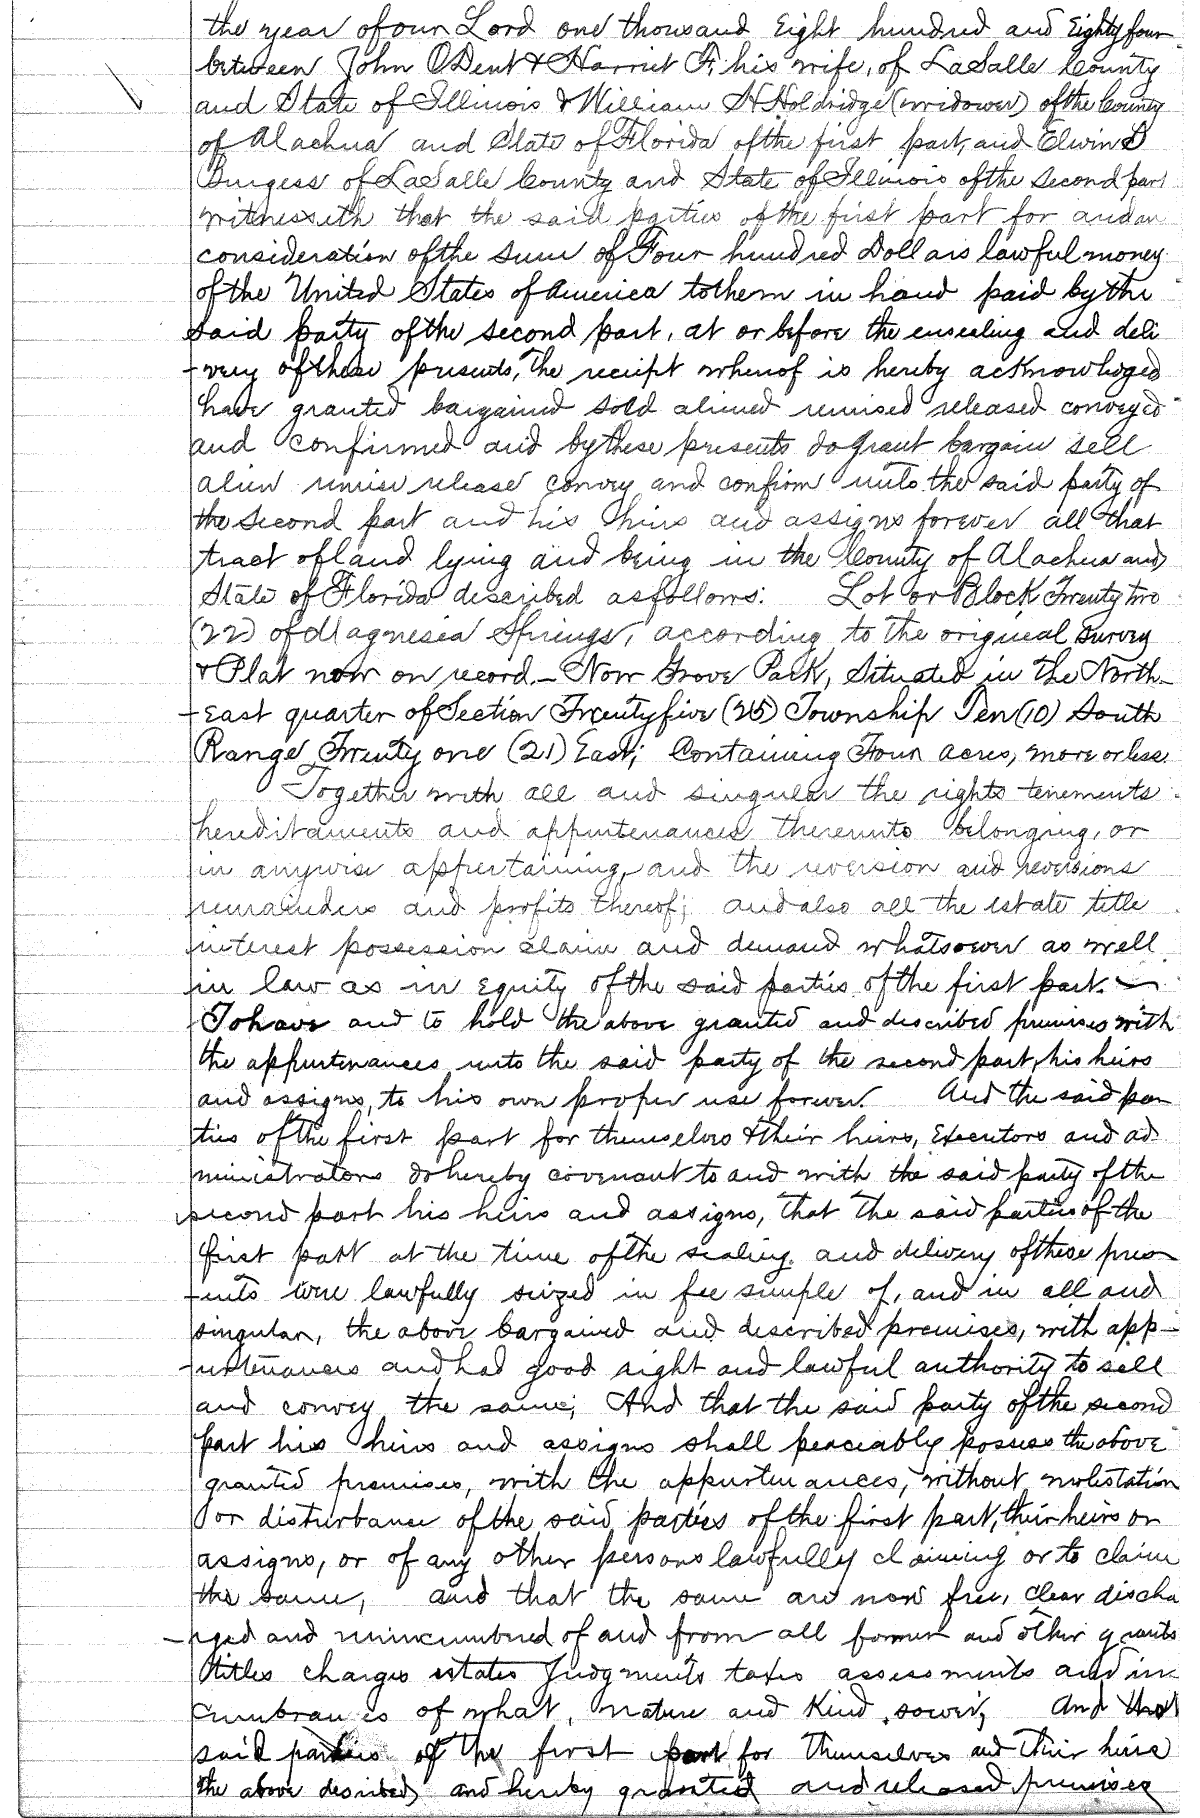 the year of our Lord one thousand Eight hundred and Eighty four
between John O Dent & Harriet F, his wife, of LaSalle County
and State of Illinois & William H Holdridge (widower) of the County
of Alachua and State of Florida of the first part, and Elwin D
Burgess of LaSalle County and State of Illinois of the Second part
witnesseth that the said parties of the first part for and in
consideration of the sum of Four hundred Dollars lawful money
of the United States of America to them in hand paid by the
said party of the second part, at or before the ensealing and deli
-very of these presents, the receipt whereof is hereby acknowledged
have granted bargained sold aliened remised released conveyed
and confirmed and by these presents do grant bargain sell
alien remise release convey and confirm unto the said party of
the second part and his heirs and assigns forever all that
tract of land lying and being in the County of Alachua and
State of Florida described as follows: Lot or Block Twenty two
(22) of Magnesia Springs, according to the original survey
& Plat now on record.- Now Grove Park, Situated in the North-
-East quarter of Section Twenty five (25) Township Ten (10) South
Range Twenty one (21) East; Containing Four acres, more or less.
Together with all and singular the rights tenements
hereditaments and appurtenances thereunto belonging, or
in anywise appertaining, and the reversion and reversions
remainders and profits thereof; and also all the estate title
interest possession claim and demand whatsoever as well
in law as in Equity of the said parties of the first part.
To have and to hold the above granted and described premises with
the appurtenances unto the said party of the second part, his heirs
and assigns, to his own proper use forever. And the said par
ties of the first part for themselves & their heirs, Executors and ad
ministrators do hereby covenant to and with the said party of the
second part his heirs and assigns, that the said parties of the
first part at the time of the sealing and delivery of these pres
-ents were lawfully seized in fee simple of, and in all and
singular, the above bargained and described premises, with app-
-urtenances and had good right and lawful authority to sell
and convey the same; And that the said party of the second
part his heirs and assigns shall peaceably possess the above
granted premises, with the appurtenances, without molestation
or disturbance of the said parties of the first part, their heirs or
assigns, or of any other persons lawfully claiming or to claim
the same, and that the same are now free, clear discha
-rged and unincumbered of and from all former and other grants
titles charges estates Judgments taxes assessments and in
cumbrances of what, nature and Kind soever, And the
said parties of the first part for themselves and their heirs
the above described, and hereby granted and released premises